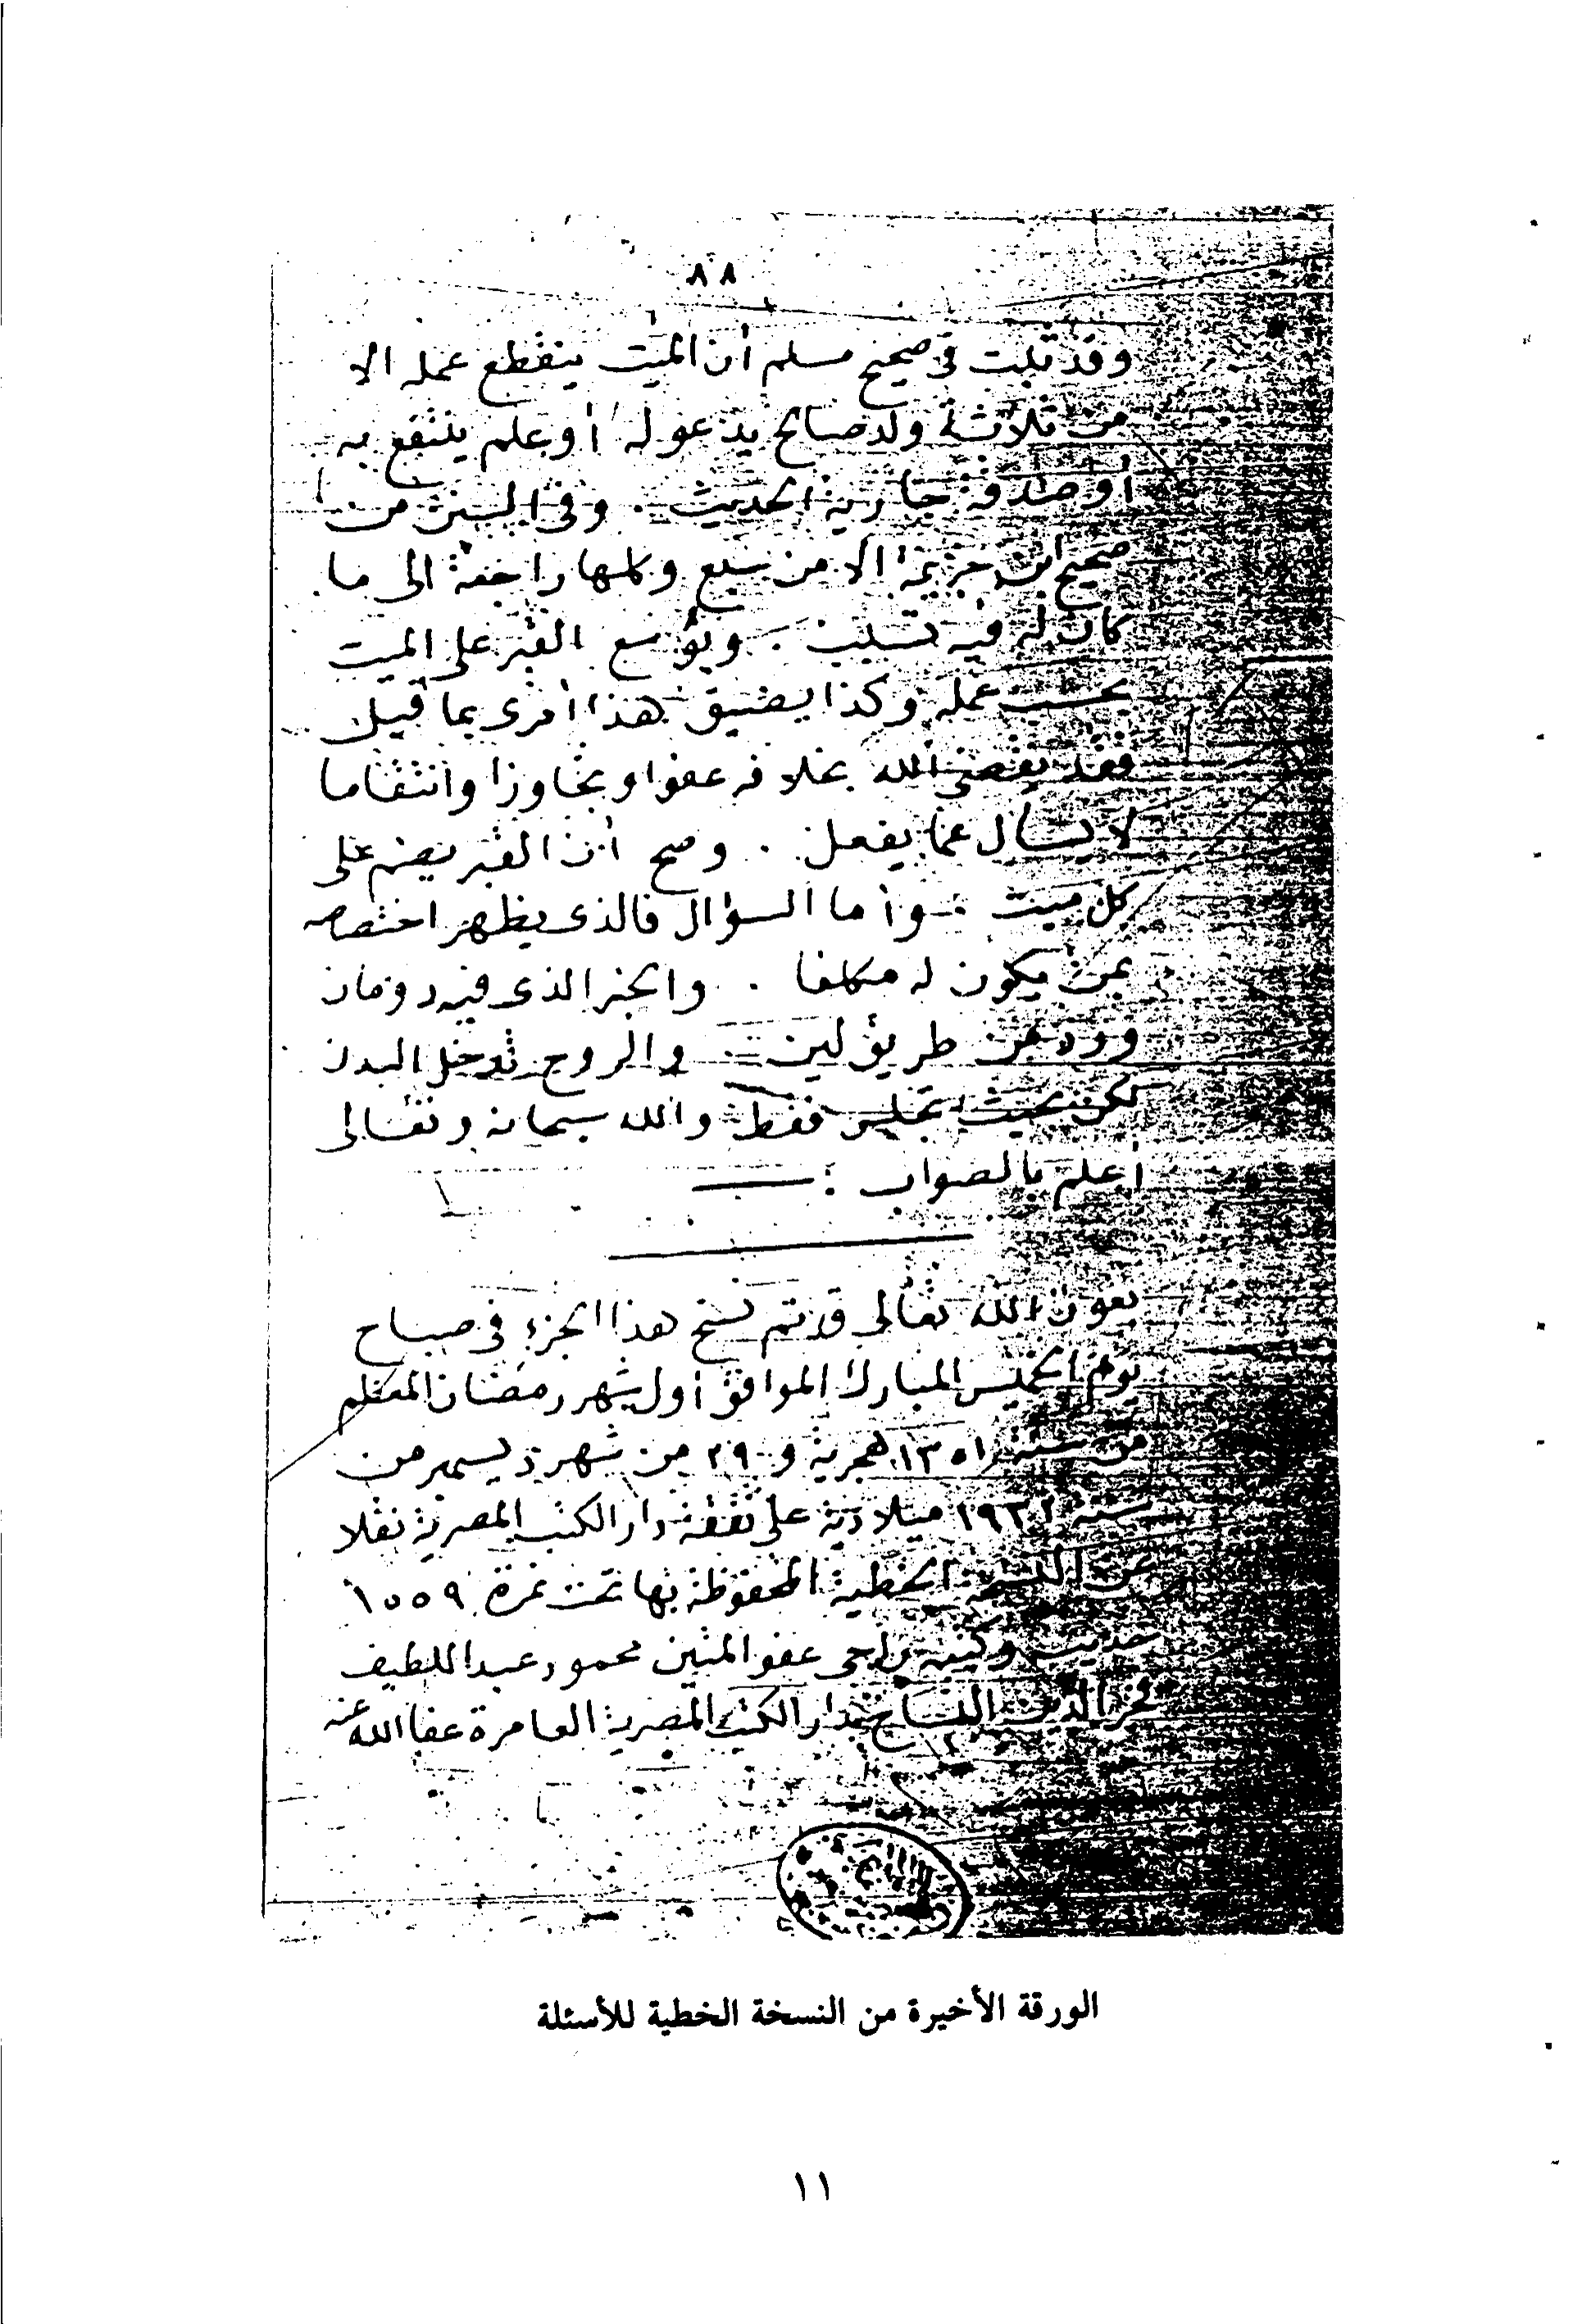 ٨٨
وقد ثبت في صحيح مسلم أن الميت ينقطع عمله الا
من ثلاثة ولد صالح يدعو له أو علم ينتفع به
أو صدقة جارية الحديث . وفي السنن من
صحيح ابن خزيمة الا من سبع وكلها راجعة الى ما
كان له فيه تسبب . ويوسع القبر على الميت
بحسب عمله وكذا يضيق هذا أمرى بما قيل
فقد يقضى الله بخلافه عفوا وتجاوزا وانتقاما
لا يسأل عما يفعل . وصح أن القبر يضم على
كل ميت . وأما السؤال فالذى يظهر اختصاصه
بمن يكون له مكلفا . والخبر الذى فيه رومان
ورد من طريق لين . والروح تدخل البدن
لكن بحيث يجلس فقط والله سبحانه وتعالى
أعلم بالصواب :
بعون الله تعالى قد تم نسخ هذا الجزء في صباح
يوم الخميس المبارك الموافق أول شهر رمضان المعظم
من سنة ١٣٥١ هجرية و ٢٩ من شهر ديسمبر من
سنة ١٩٣٢ ميلادية على نفقة دار الكتب المصرية نقلا
عن النسخة الخطية المحفوظة بها تحت نمرة ١٥٥٩
حديث وكتبه راجى عفو المتين محمود عبد اللطيف
فخر الدين النساخ بدار الكتب المصرية العامرة عفا الله عنه
الورقة الأخيرة من النسخة الخطية للأسئلة
١١